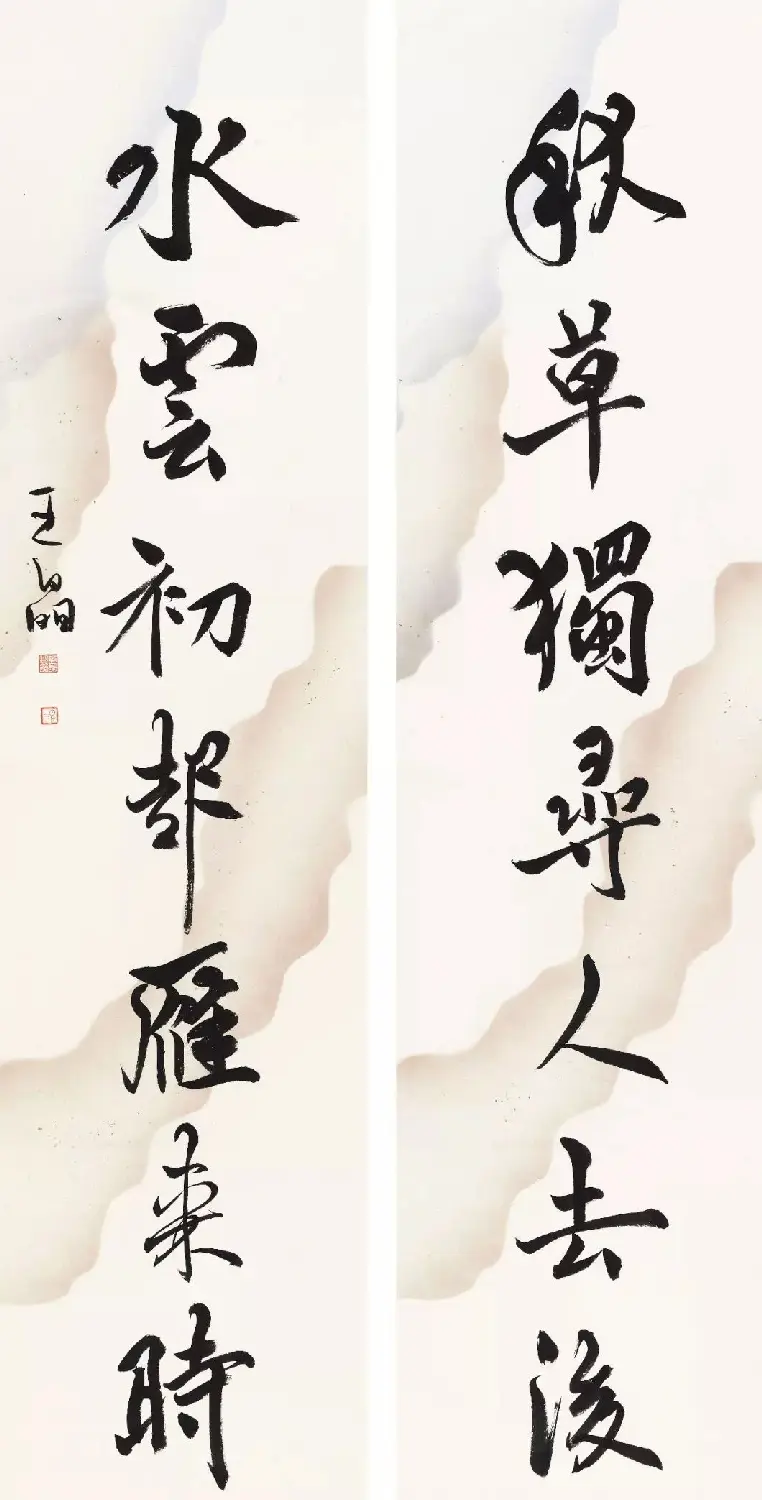 秋草獨尋人去後
水雲初雁來時
王晶